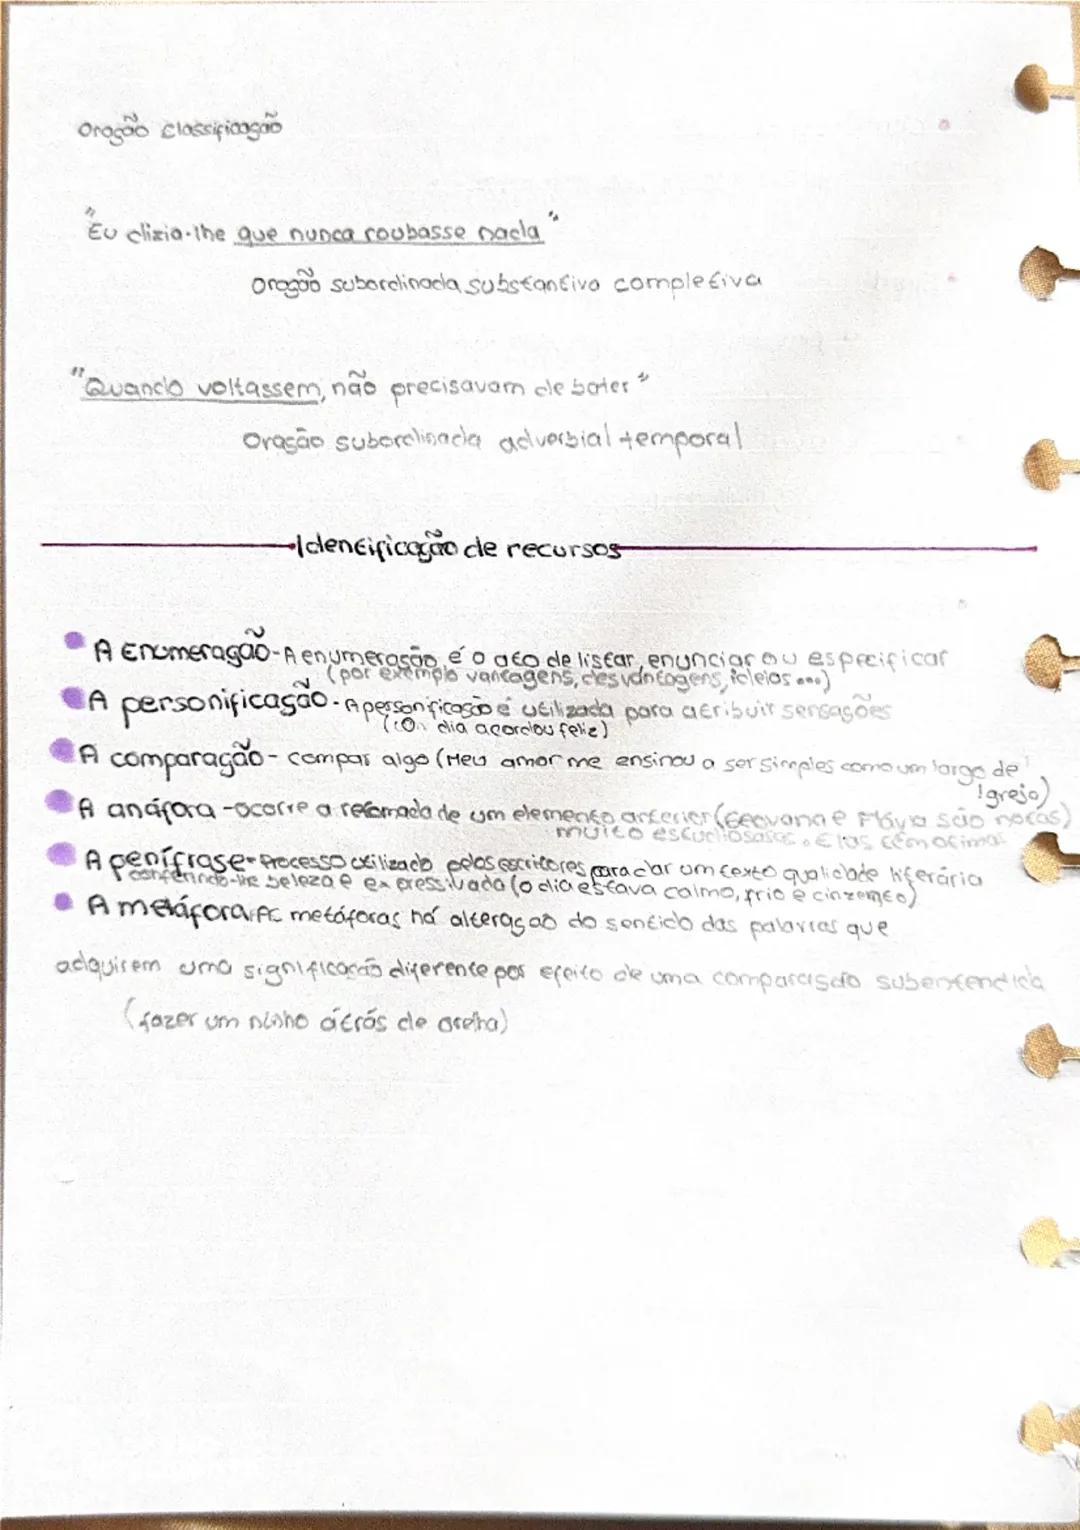 Oração classificação
"Eu dizia-lhe que nunca roubasse nada"
Oração subordinada substantiva completiva
"Quando voltassem, não precisavam de bater"
Oração subordinada adverbial temporal
Identificação de recursos
A Enumeração - A enumeração é o ato de listar, enunciar ou especificar
(por exemplo vantagens, desvantagens, ideias...)
A personificação - A personificação é utilizada para atribuir sensações
(O dia acordou feliz)
A comparação - compar algo (Meu amor me ensinou a ser simples como um largo de
Igreja)
A anáfora - ocorre a retomada de um elemento anterior ( e Flávia são
muito estudiosas. Elas têm
A perífrase - Processo utilizado pelos escritores para dar um texto qualidade literária
conferindo-lhe beleza e (o dia estava calmo, frio e cinzento)
A metáfora metáforas há alteração do sentido das palavras que
adquirem uma significação diferente por efeito de uma comparação subentendida
(fazer um ninho atrás de orelha)